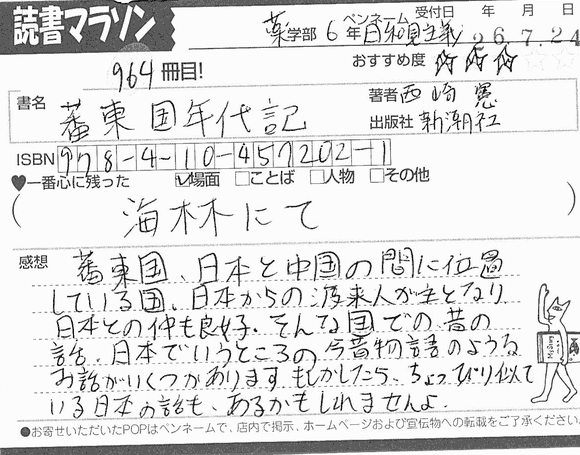 読書マラソン
薬学部 6年 ペンネーム 日和見主義 受付日 年 月 日
26.7.24
おすすめ度 ☆☆☆☆☆
964冊目!
書名 蕃東国年代記
著者 西崎憲
出版社 新潮社
ISBN 978-4-10-457202-1
♥一番心に残った ☑場面 □ことば □人物 □その他
( 海林にて )
感想 蕃東国、日本と中国の間に位置
している国、日本からの渡来人が主となり
日本との仲も良好。そんな国での昔の
話、日本でいうところの今昔物語のような
お話がいくつがあります もしかしたら、ちょっぴり似て
いる日本の話も、あるかもしれませんよ。
Mystery
●お寄せいただいたPOPはペンネームで、店内で掲示、ホームページおよび宣伝物への転載をご了承ください。